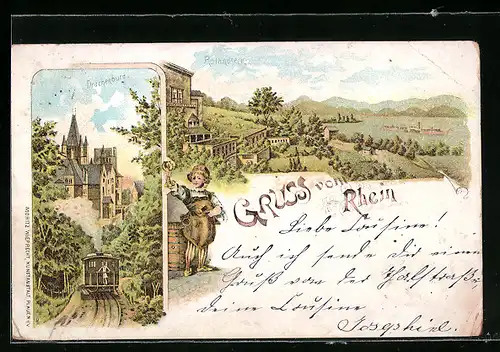 Drachenburg.
Rolandseck.
GRUSS vom Rhein
Liebe Cousine!
Auch ich sende dir einen
Gruß von der
deine Cousine
Josephine.